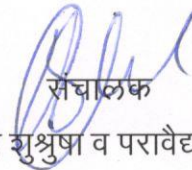 संचालक
शुश्रुषा व परावैद्य